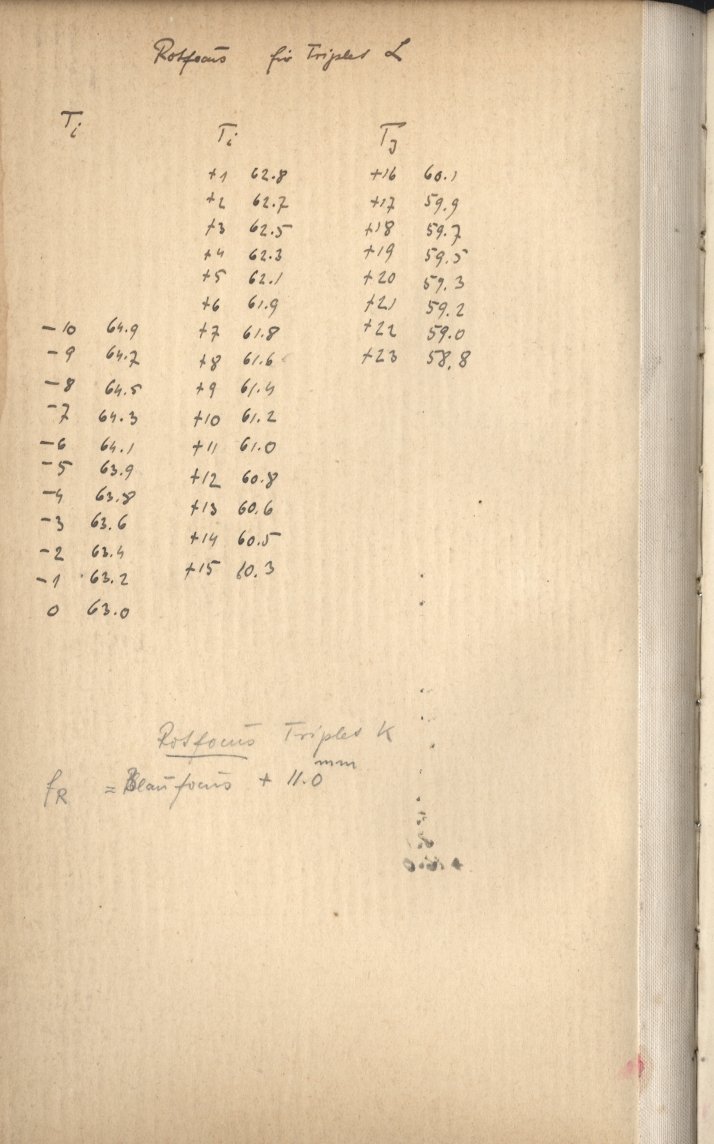 Rotfocus für Triplet L
Ti Ti TJ
+1 62.8 +16 60.1
+2 62.7 +17 59.9
+3 62.5 +18 59.7
+4 62.3 +19 59.5
+5 62.1 +20 59.3
+6 61.9 +21 59.2
-10 64.9 +7 61.8 +22 59.0
-9 64.7 +8 61.6 +23 58.8
-8 64.5 +9 61.4
-7 64.3 +10 61.2
-6 64.1 +11 61.0
-5 63.9 +12 60.8
-4 63.8 +13 60.6
-3 63.6 +14 60.5
-2 63.4 +15 60.3
-1 63.2
0 63.0
Rotfocus Triplet K
fR = Blaufocus + 11.0 mm